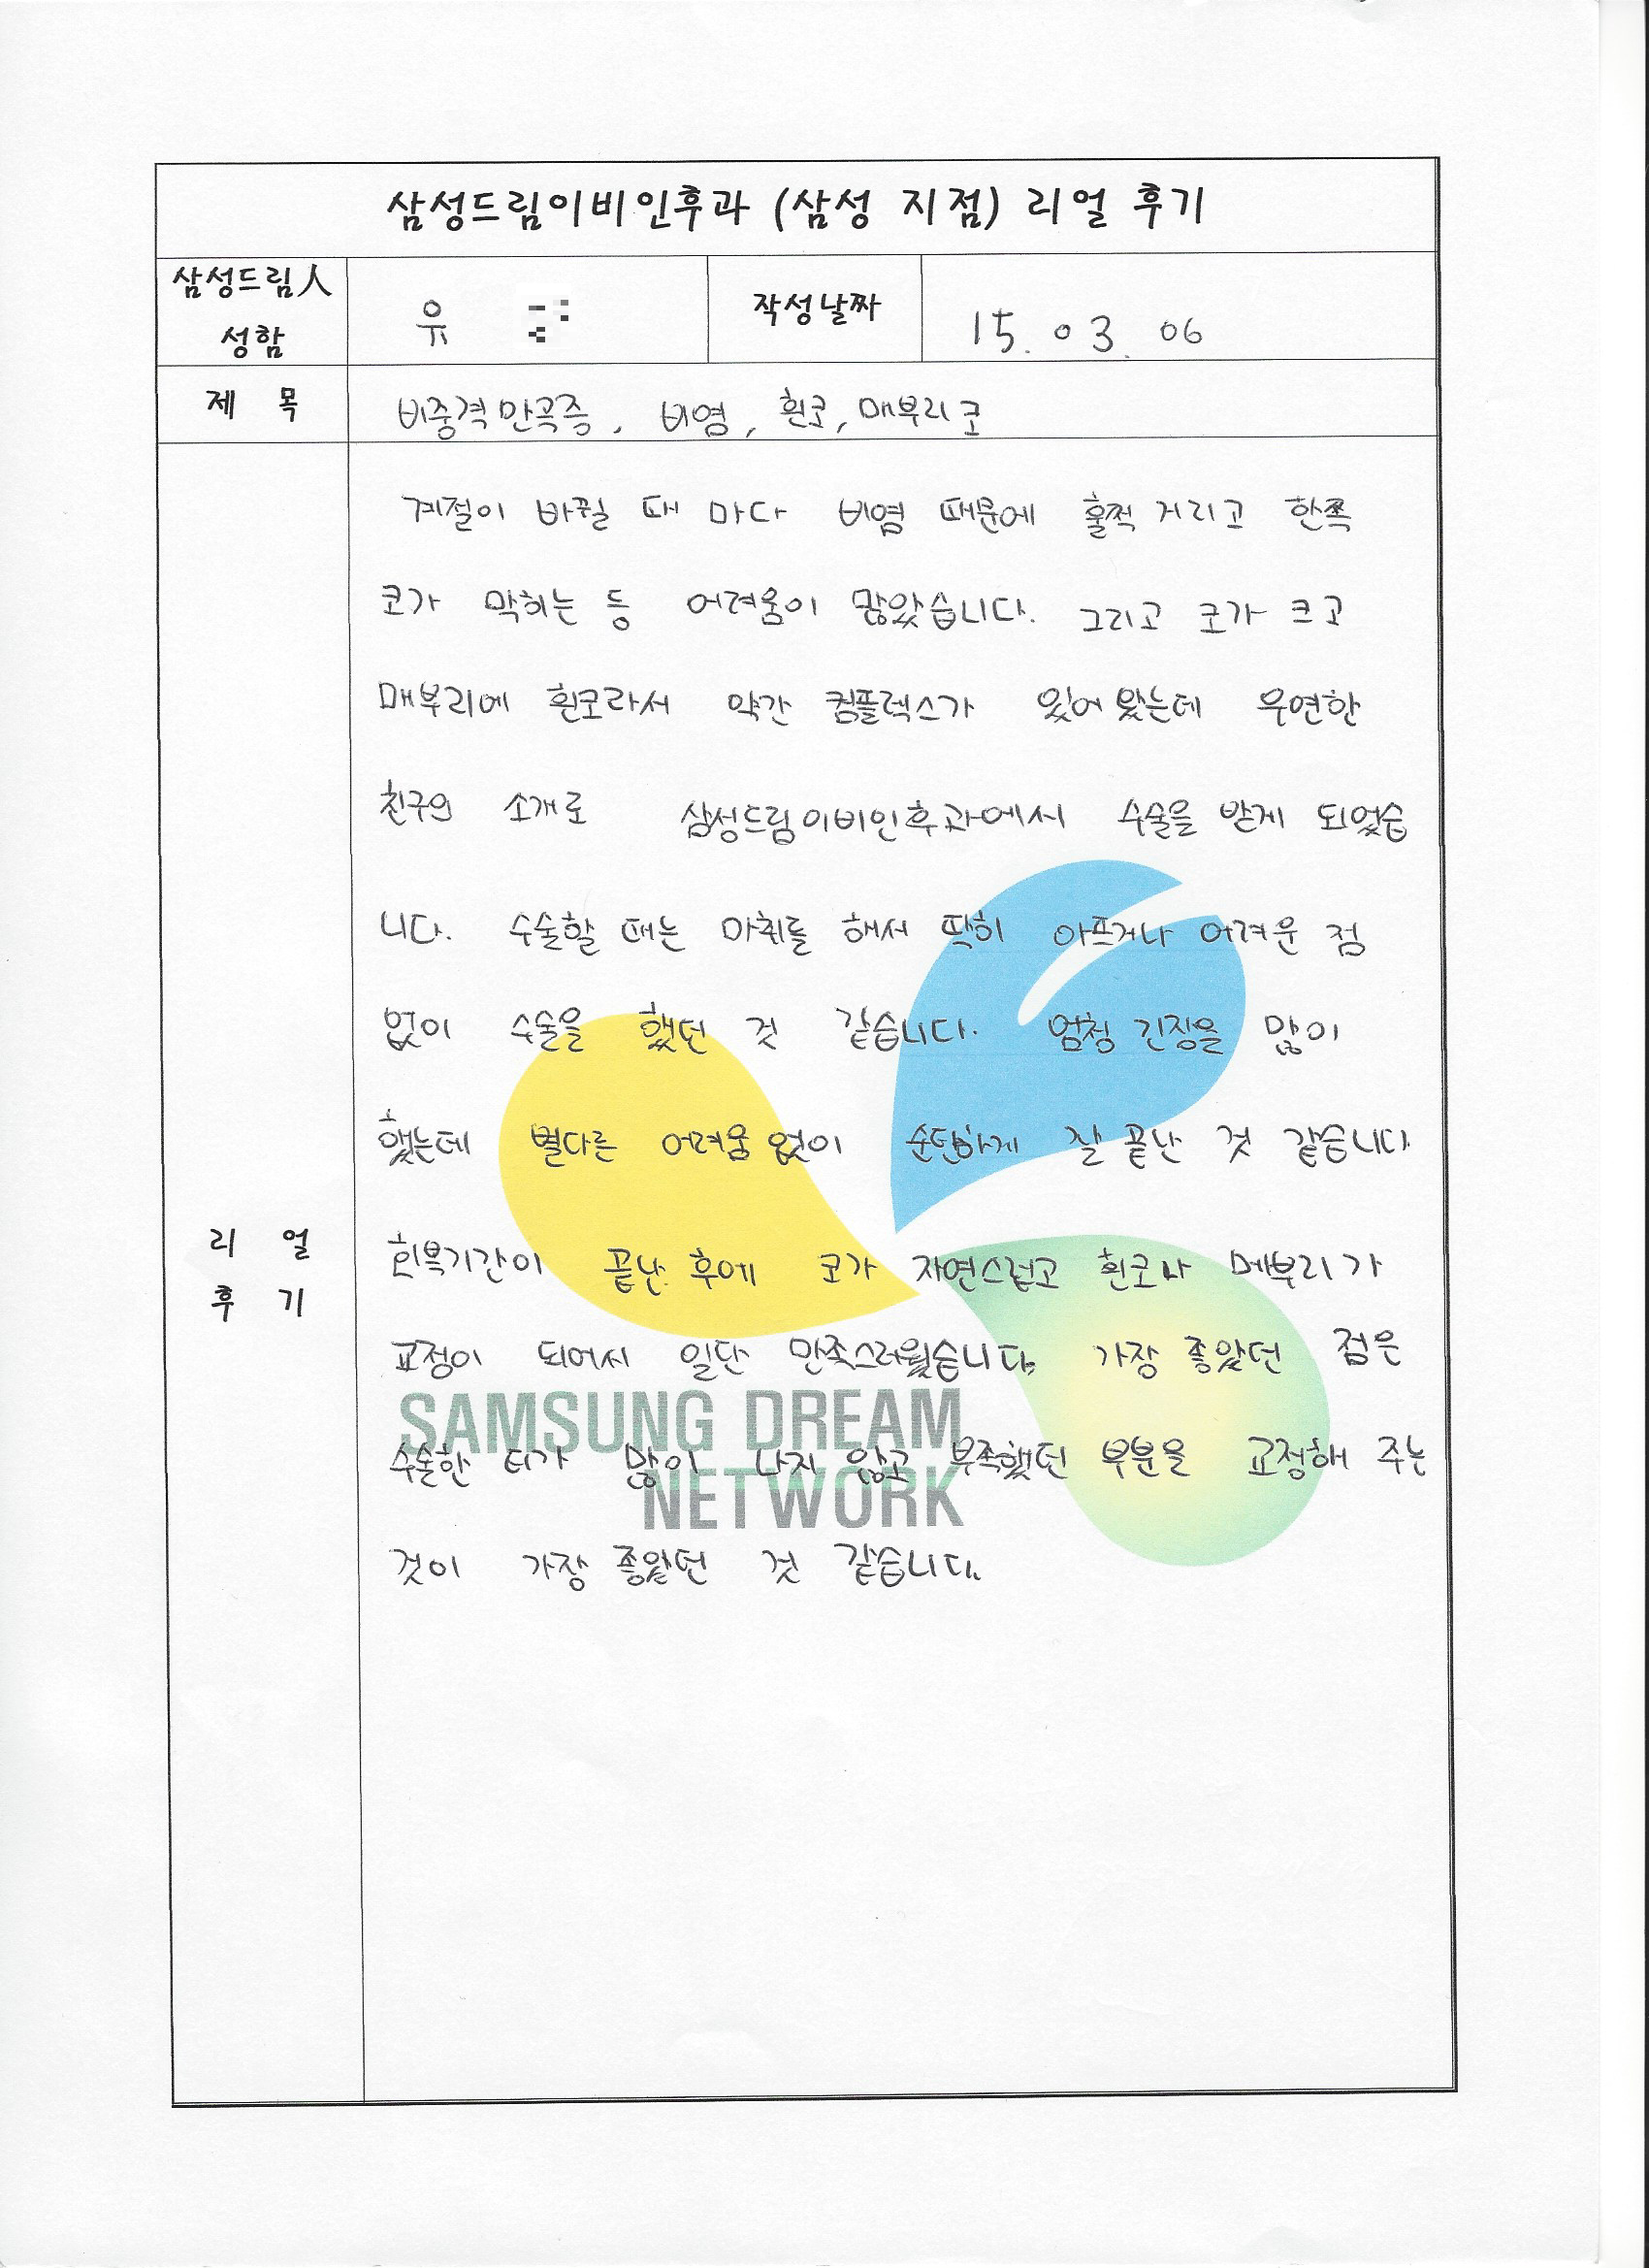 삼성드림이비인후과 (삼성 지점) 리얼 후기
삼성드림人 성함
유
작성날짜
15. 03. 06
제 목
비중격만곡증, 비염, 휜코, 매부리코
리 얼
후 기
계절이 바뀔 때 마다 비염 때문에 훌쩍 거리고 한쪽
코가 막히는 등 어려움이 많았습니다. 그리고 코가 크고
매부리에 휜코라서 약간 컴플렉스가 있어 왔는데 우연한
친구의 소개로 삼성드림이비인후과에서 수술을 받게 되었습
니다. 수술할 때는 마취를 해서 딱히 아프거나 어려운 점
없이 수술을 했던 것 같습니다. 엄청 긴장을 많이
했는데 별다른 어려움 없이 순탄하게 잘 끝난 것 같습니다
회복기간이 끝난 후에 코가 자연스럽고 휜코나 메부리가
교정이 되어서 일단 만족스러웠습니다. 가장 좋았던 점은
수술한 티가 많이 나지 않고 부족했던 부분을 교정해 주는
것이 가장 좋았던 것 같습니다.
SAMSUNG DREAM
NETWORK